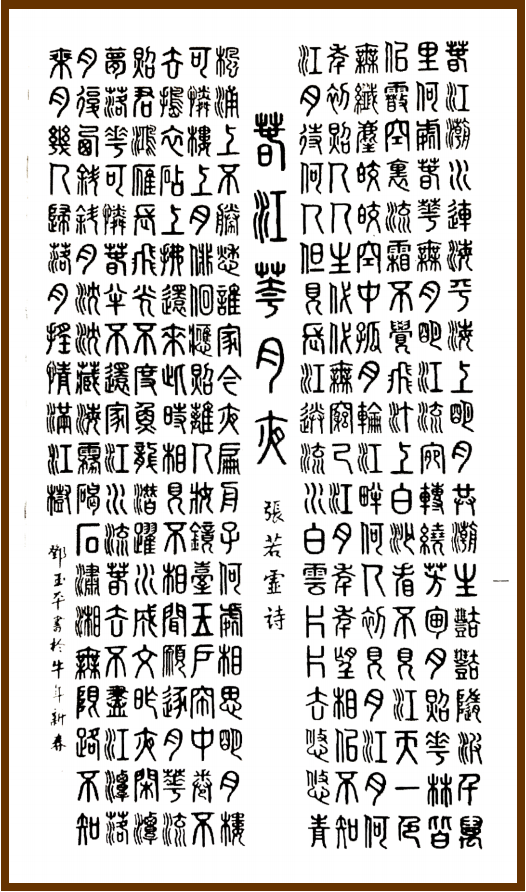 春江潮水連海平海上明月共潮生豔豔隨波千萬
里何處春華無月明江流宛轉繞芳甸月照華林皆
似霰空裏流霜不覺飛汀上白沙看不見江天一色
無纖塵皎皎空中孤月輪江畔何人初見月江月何
年初照人人生代代無窮已江月年年望相似不知
江月待何人但見長江送流水白雲片片去悠悠青
春江華月夜
張若虛詩
楓浦上不勝愁誰家今夜扁舟子何處相思明月樓
可憐樓上月俳佪應照離人妝鏡臺玉戶帘中卷不
去搗衣砧上拂還來此時相見不相聞願逐月華流
照君鴻雁長飛光不度魚龍潛躍水成文昨夜閑潭
夢落華可憐春半不還家江水流春去不盡江潭落
月復西斜斜月沈沈藏海霧碣石瀟湘無限路不知
乘月幾人歸落月搖情滿江樹
鄧玉平書於牛年新春